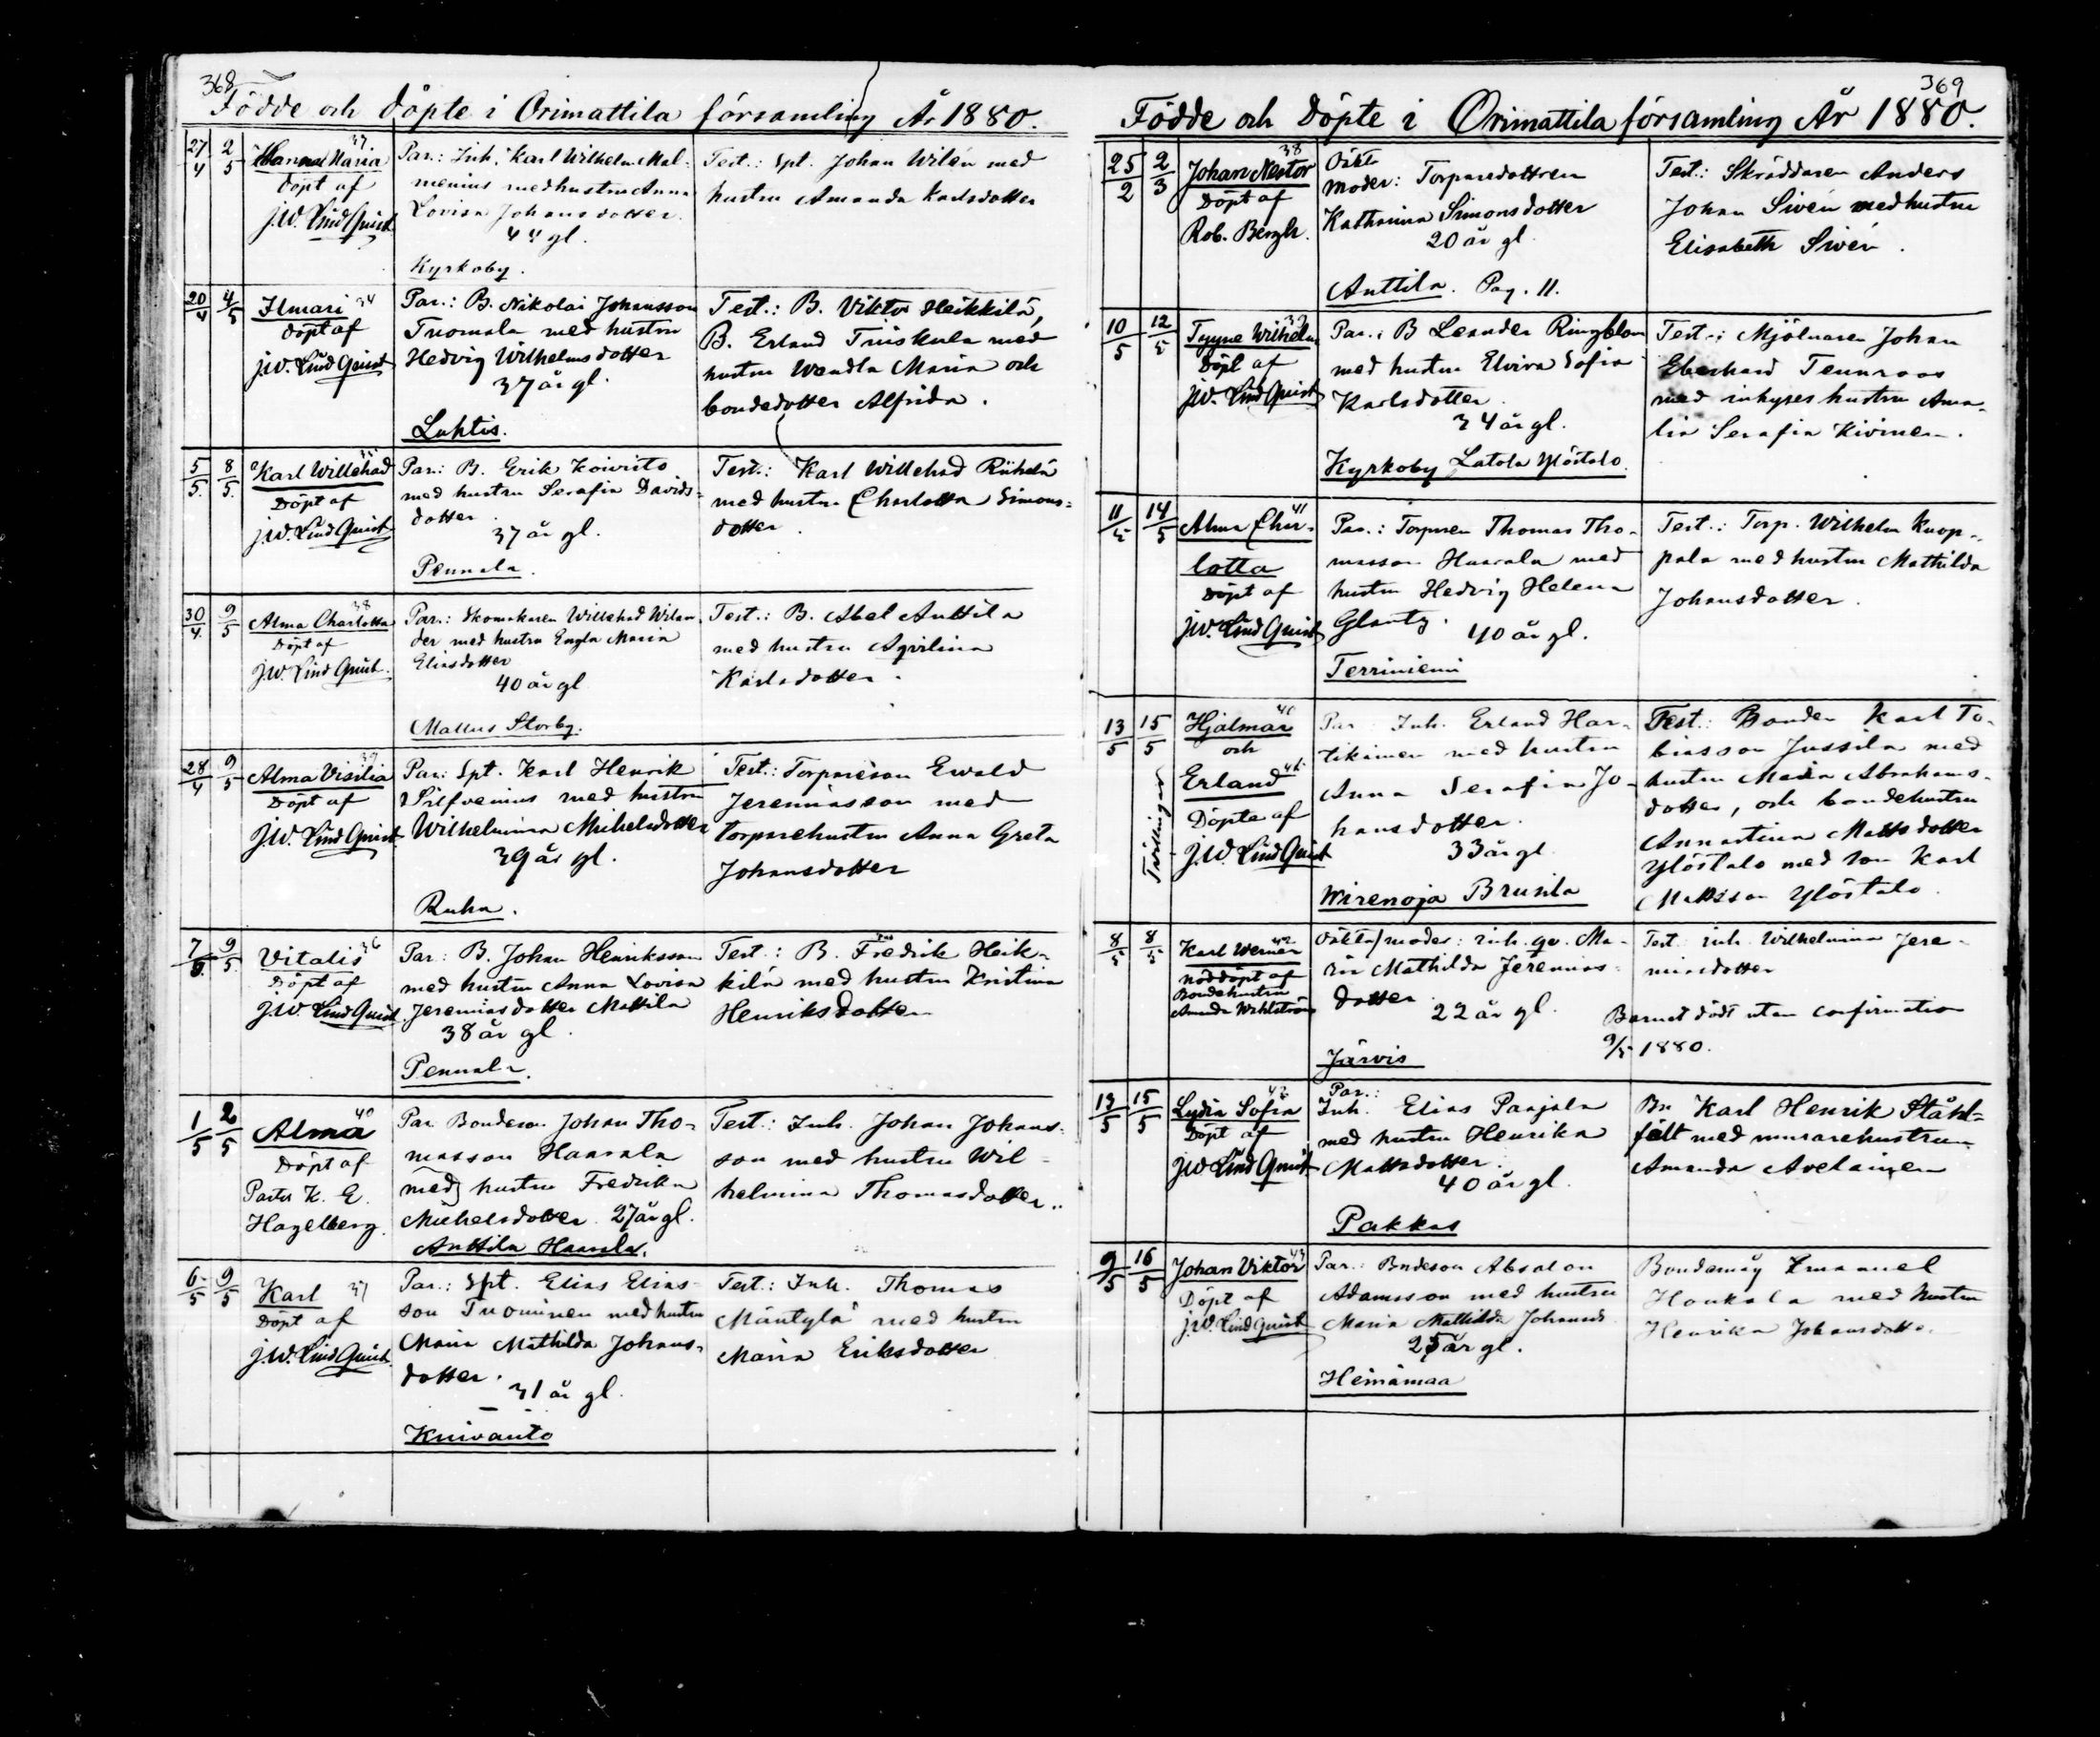 368
Födde och döpte i Orimattila församling År 1880.
27/4 2/5 Hanna Maria 37
Döpt af
J.W. LindQuist
Par.: Inh. Karl Wilhelm Mal-
menius med hustru Anna
Lovisa Johansdotter.
gl.
Kyrkoby.
Test.: Spt. Johan Wilén med
hustru Amanda Karlsdotter
20/4 4/5 Ilmari 34
Döpt af
J.W. LindQuist
Par.: B. Nikolai Johansson
Tuomala med hustru
Hedvig Wilhelmsdotter
37 år gl.
Luhtis.
Test.: B. Viktor Heikkilä,
B. Erland Triiskula med
hustru Wendla Maria och
bondedotter Alfrida.
5/5 8/5 Karl Willehad
Döpt af
J.W. LindQuist
Par.: B. Erik Koivisto
med hustru Serafia Davids-
dotter
37 år gl.
Pennala.
Test.: Karl Willehad Riihelä
med hustru Charlotta Simons-
dotter.
30/4 9/5 Alma Charlotta 38
Döpt af
J.W. LindQuist.
Par.: Skomakaren Willehad Wilan-
der med hustru Engla Maria
Eliasdotter
40 år gl
Mallus Storby.
Test.: B. Abel Anttila
med hustru Aqvilina
Karlsdotter.
28/4 9/5 Alma Visilia 39
Döpt af
J.W. LindQuist
Par.: Spt. Karl Henrik
Silfvenius med hustru
Wilhelmina Michelsdotter
39 år gl.
Ruha.
Test.: Torpareson Ewald
Jeremiasson med
torparehustru Anna Greta
Johansdotter
7/5 9/5 Vitalis 36
Döpt af
J.W. LindQuist
Par: B. Johan Henriksson
med hustru Anna Lovisa
Jeremiasdotter Mattila
38 år gl.
Pennala.
Test: B. Fredrik Heik-
kilä med hustru Kristina
Henriksdotter
1/5 2/5 Alma 40
Döpt af
Pastor K. E.
Hagelberg.
Par Bondeson Johan Tho-
masson Haarala
med hustru Fredrika
Michelsdotter 27 år gl.
Anttila Haarala.
Test.: Inh. Johan Johans-
son med hustru Wil-
helmina Thomasdotter..
6/5 9/5 Karl 37
Döpt af
J.W. LindQuist.
Par.: Spt. Elias Elias-
son Tuominen med hustru
Maria Mathilda Johans-
dotter.
31 år gl.
Kuivanto
Test: Inh. Thomas
Mäntylä med hustru
Maria Eriksdotter
369
Födde och Döpte i Orimattila församling År 1880.
25/2 2/3 Johan Nestor 38
Döpt af
Rob. Bergh.
Oäkt
Moder: Torparedottren
Katharina Simonsdotter
20 år gl.
Anttila. Pag. 11.
Test.: Skräddaren Anders
Johan Sivén med hustru
Elisabeth Sivén.
10/5 12/5 Tyyne Wilhelm
Döpt af
J.W. LindQuist
Par.: B Leander Ringblom
med hustru Elvira Sofia
Karlsdotter.
34 år gl.
Kyrkoby Latola Ylöstalo.
Test.: Mjölnaren Johan
Eberhard Tennroos
med inhyses hustru Ama-
lia Serafia Kivinen.
11/5 14/5 Alma Char- 41
lotta
Döpt af
J.W. LindQuist
Par.: Torparen Thomas Tho-
masson Haarala med
hustru Hedvig Helena
Glantz.
40 år gl.
Terriniemi
Test.: Torp. Wilhelm Knop-
pala med hustru Mathilda
Johansdotter.
13/5 15/5 Tvillingar
Hjalmar 40
och
Erland 41
Döpte af
J.W. LindQuist
Par Inh. Erland Har-
tikainen med hustru
Anna Serafia Jo-
hansdotter.
33 år gl
Wirenoja Brusila
Test.: Bonden Karl To-
biasson Jussila med
hustru Maria Abrahams-
dotter, och bondehustru
Annastina Mattsdotter
Ylöstalo med son Karl
Mattsson Ylöstalo.
8/5 8/5 Karl Werner 42
nöddöpt af
Bondehustru
Amanda Wahlström
Oäkta/moder: inh. qv. Ma-
ria Mathilda Jeremias-
dotter.
22 år gl.
Järvis
Test inh. Wilhelmina Jere-
miasdotter
Barnet dödt utan confirmation
9/5 1880.
13/5 15/5 Lydia Sofia 42
Döpt af
J.W. LindQuist
Par.:
Inh. Elias Paajala
med hustru Henrika
Mattsdotter.
40 år gl.
Pakkas
Bn Karl Henrik Ståhl-
felt med murarehustrun
Amanda Avelainen
9/5 16/5 Johan Viktor 43
Döpt af
J.W. LindQuist
Par.: Bndeson Absalon
Adamsson med hustru
Maria Mathilda Johansd.
25 år gl.
Heinämaa
Bondemåg Emanuel
Honkala med hustru
Henrika Johansdotter.